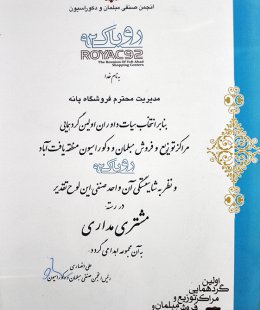 انجمن صنفی مبلمان و دکوراسیون
رویاک ۹۲
ROYAC92
The Reunion Of Yaft Abad
Shopping Centers
به نام خدا
مدیریت محترم فروشگاه پانه
بنا بر انتخاب هیات داوران اولین گردهمایی
مراکز توزیع و فروش مبلمان و دکوراسیون منطقه یافت آباد
رویاک ۹۲
و نظر به شایستگی آن واحد صنفی این لوح تقدیر
در رسته
مشتری مداری
به آن مجموعه اهدا می گردد.
علی انصاری
رئیس انجمن صنفی مبلمان و دکوراسیون
اولین
گردهمایی
مراکز توزیع و
فروش مبلمان و